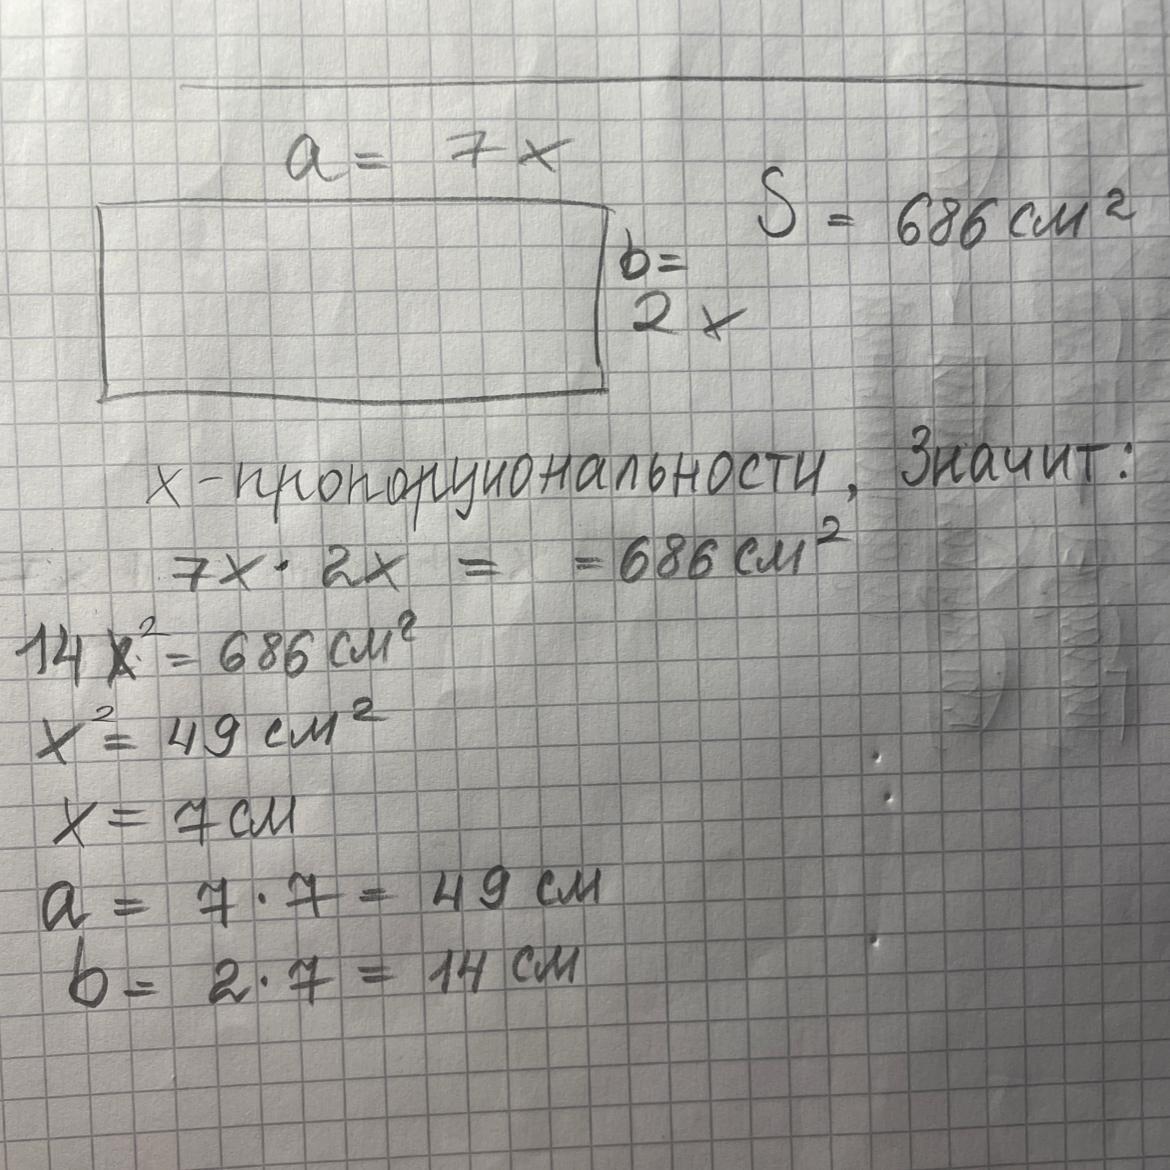 a = 7x
S = 686 см²
b =
2x
x - пропорциональности, Значит:
7x · 2x = = 686 см²
14x² = 686 см²
x² = 49 см²
x = 7 см
a = 7 · 7 = 49 см
b = 2 · 7 = 14 см